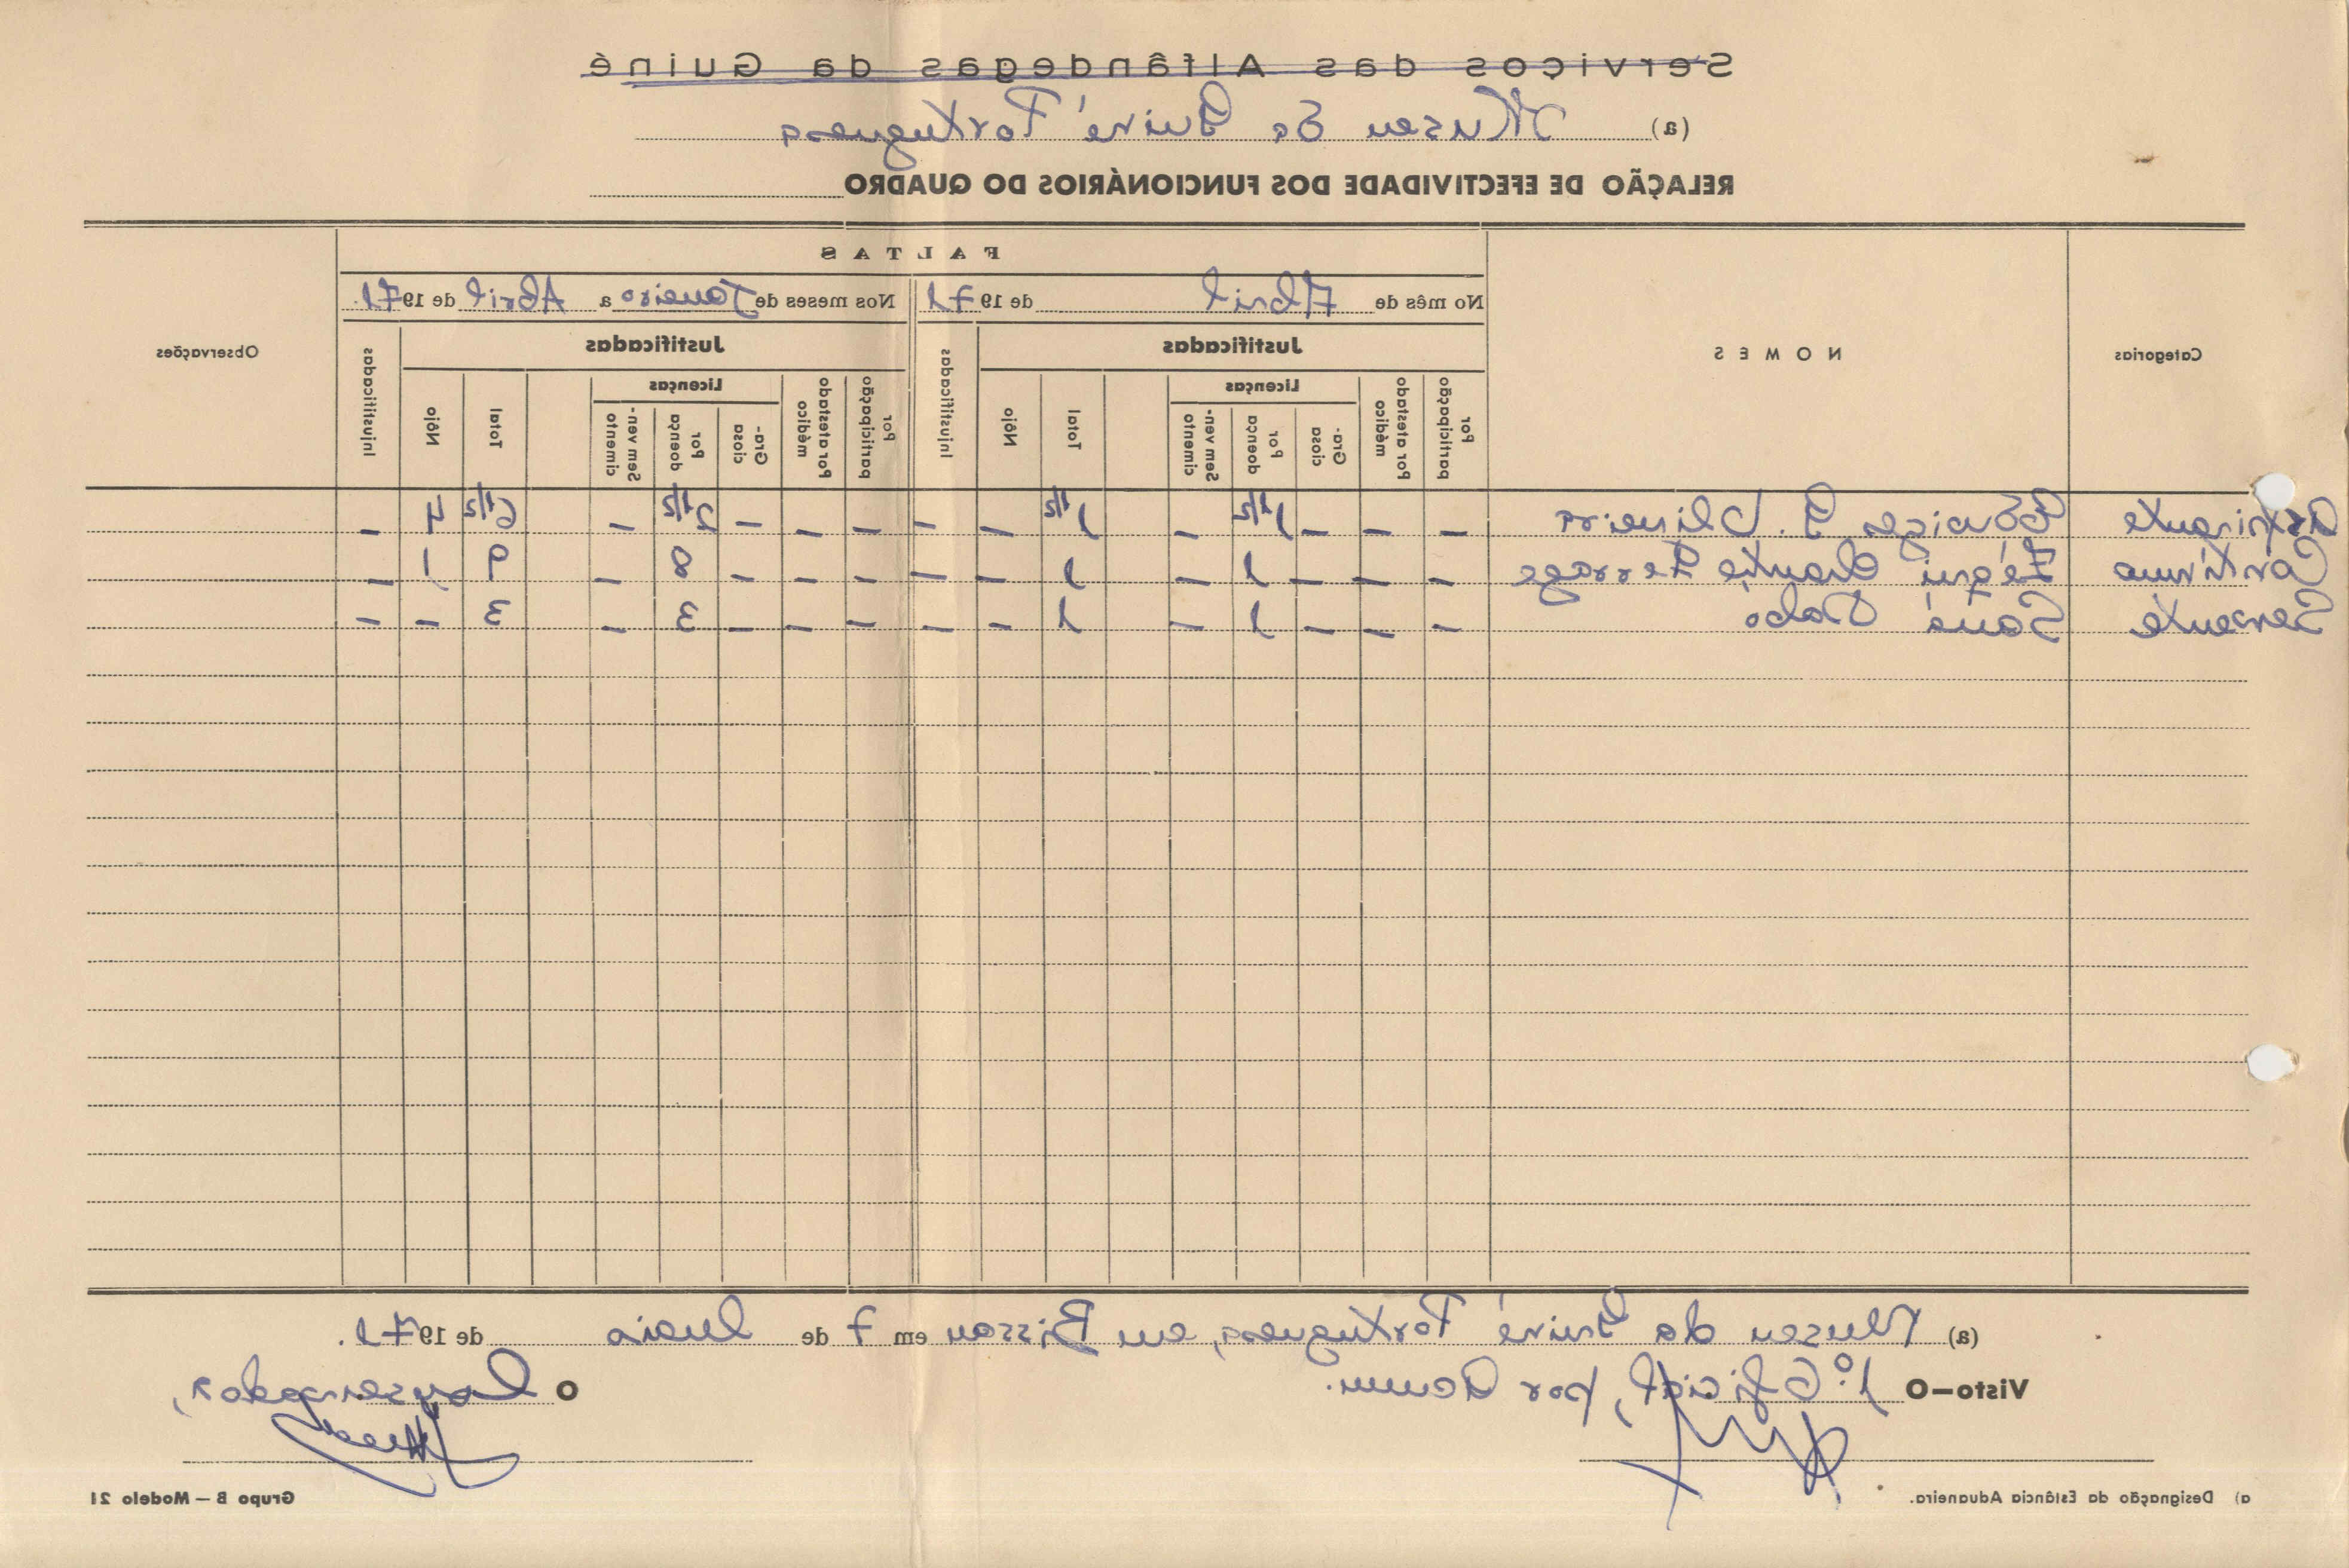 Serviços das Alfândegas da Guiné
(a) Museu da Guiné Portuguesa
RELAÇÃO DE EFECTIVIDADE DOS FUNCIONÁRIOS DO QUADRO
Categorias
N O M E S
F A L T A S
No mês de Abril de 1971
Nos meses de Janeiro a Abril de 1971.
Observações
Justificadas
Injustificadas
Justificadas
Injustificadas
Licenças
Licenças
Por participação
Por atestado médico
Gra-ciosa
Por doença
Sem ven-cimento
Total
Nôjo
Por participação
Por atestado médico
Gra-ciosa
Por doença
Sem ven-cimento
Total
Nôjo
G. – – – 1 1/2 – 1 1/2 – – – – – 2 1/2 – 6 1/2 4 –
Contínuo – – – 1 – 1 – – – – – 8 – 9 1 –
Servente Sana – – – 1 – 1 – – – – – 3 – 3 – –
(a) Museu da Guiné Portuguesa, em Bissau em 7 de Maio de 1971.
Visto—O 1.º Oficial, por acum.
O Conservador,
a) Designação da Estância Aduaneira.
Grupo B — Modelo 21